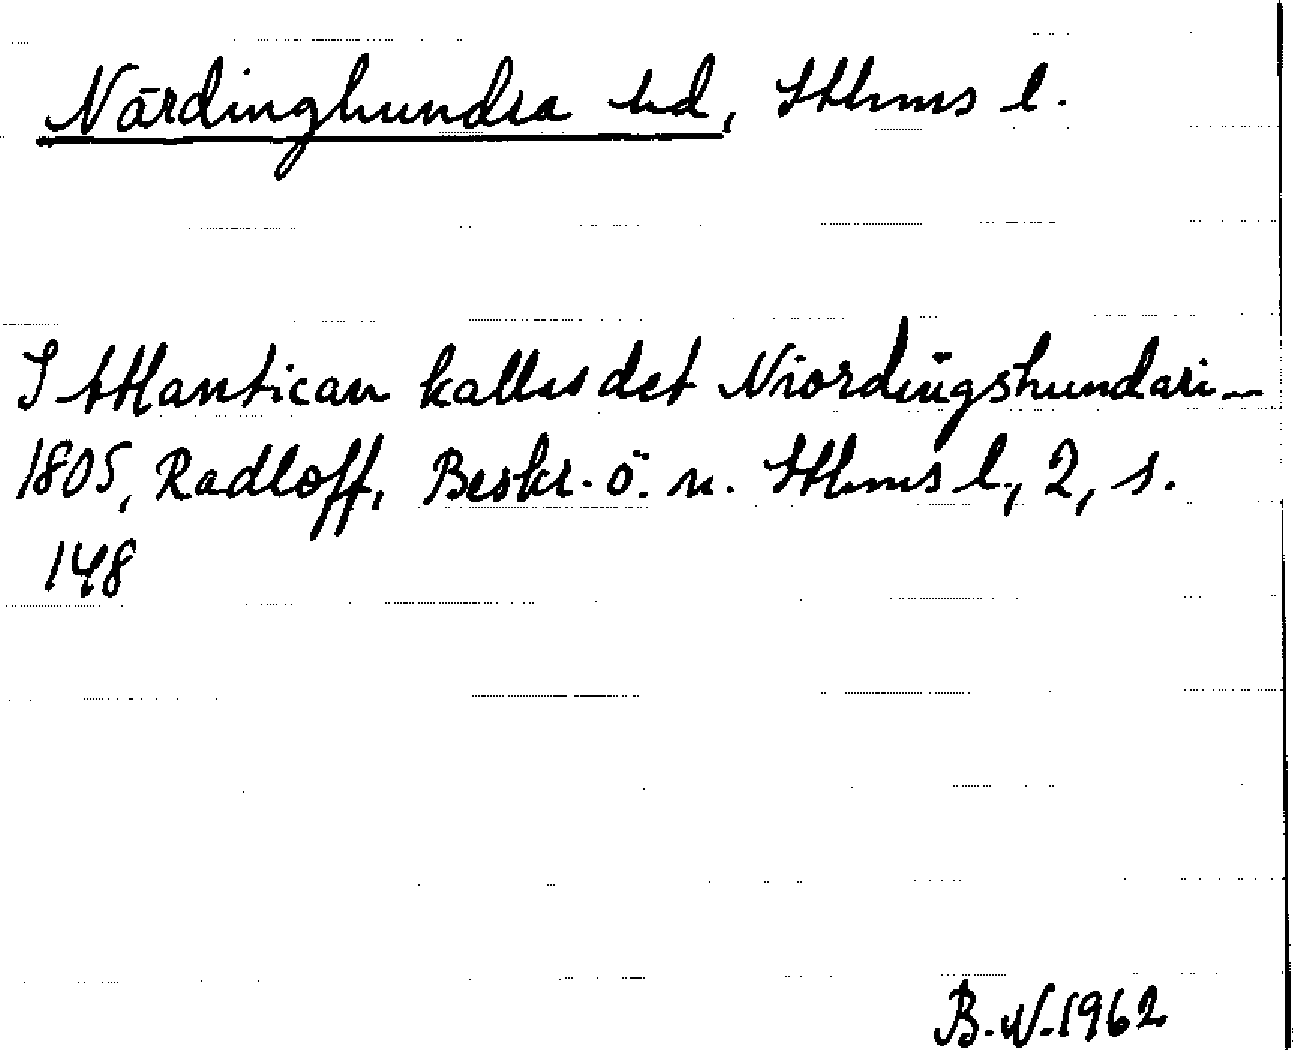 Närdinghundra hd, Sthms l.
I Atlantican kallas det Niordingshundari –
1805, Radloff, Beskr. ö. n. Sthms l, 2, s.
148
B. N. 1962